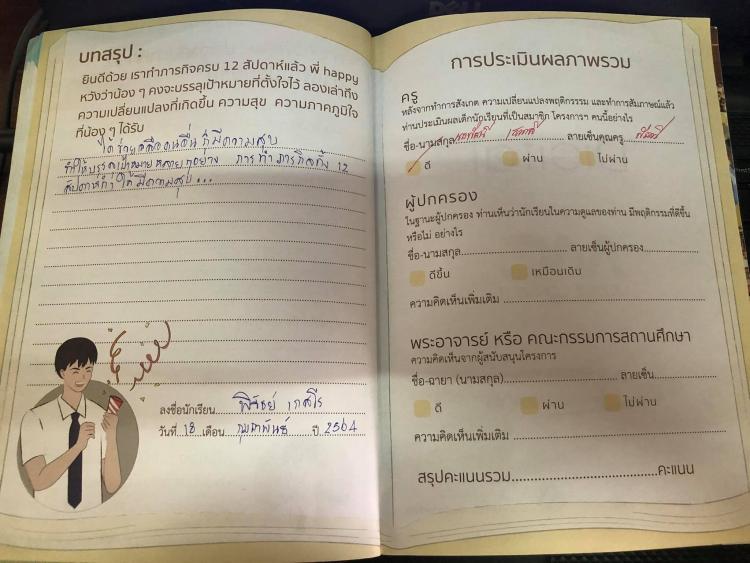 บทสรุป :
ยินดีด้วย เราทำภารกิจครบ 12 สัปดาห์แล้ว พี่ happy
หวังว่าน้อง ๆ คงจะบรรลุเป้าหมายที่ตั้งใจไว้ ลองเล่าถึง
ความเปลี่ยนแปลงที่เกิดขึ้น ความสุข ความภาคภูมิใจ
ที่น้อง ๆ ได้รับ
ได้ช่วยเหลือคนอื่น ก็มีความสุข
ทำให้บรรลุเป้าหมายหลายๆอย่าง การทำภารกิจทั้ง 12
สัปดาห์ทำให้มีความสุข...
ลงชื่อนักเรียน
วันที่ 18 เดือน กุมภาพันธ์ ปี 2564
การประเมินผลภาพรวม
ครู
หลังจากทำการสังเกต ความเปลี่ยนแปลงพฤติกรรม และทำการสัมภาษณ์แล้ว
ท่านประเมินผลเด็กนักเรียนที่เป็นสมาชิก โครงการฯ คนนี้อย่างไร
ชื่อ-นามสกุล ลายเซ็นคุณครู
ดี ผ่าน ไม่ผ่าน
ผู้ปกครอง
ในฐานะผู้ปกครอง ท่านเห็นว่านักเรียนในความดูแลของท่าน มีพฤติกรรมที่ดีขึ้น
หรือไม่ อย่างไร
ชื่อ-นามสกุล ลายเซ็นผู้ปกครอง
ดีขึ้น เหมือนเดิม
ความคิดเห็นเพิ่มเติม
พระอาจารย์ หรือ คณะกรรมการสถานศึกษา
ความคิดเห็นจากผู้สนับสนุนโครงการ
ชื่อ-ฉายา (นามสกุล) ลายเซ็น
ดี ผ่าน ไม่ผ่าน
ความคิดเห็นเพิ่มเติม
สรุปคะแนนรวม คะแนน